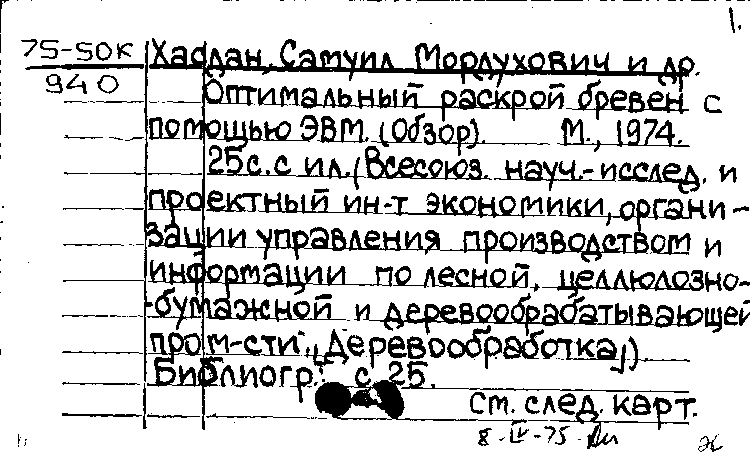 1.
75-50к Хадлан, Самуил Мордухович и др.
940
Оптимальный раскрой бревен с
помощью ЭВМ. (Обзор). М., 1974.
25с. с ил. (Всесоюз. науч.-исслед. и
проектный ин-т экономики, органи-
зации управления производством и
информации по лесной, целлюлозно-
-бумажной и деревообрабатывающей
пром-сти. „Деревообработка").
Библиогр.: с 25.
См. след. карт.
8-IV-75